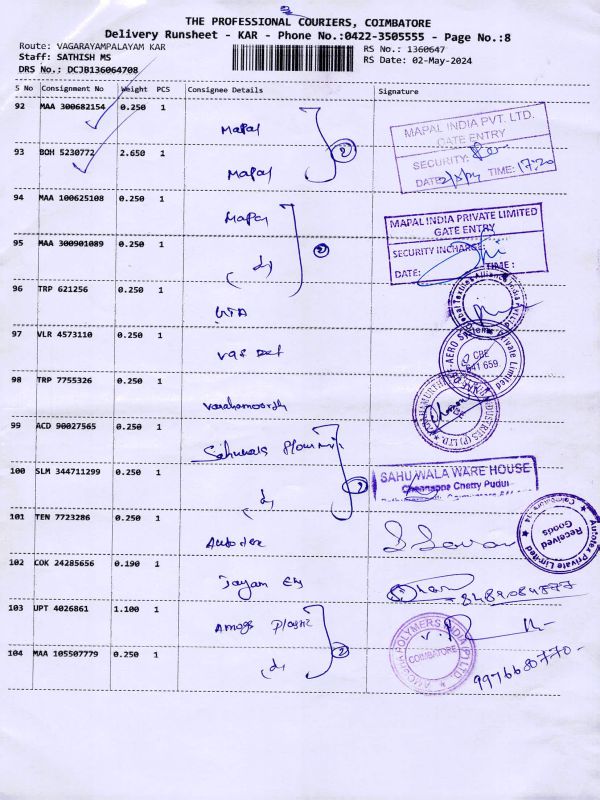 THE PROFESSIONAL COURIERS, COIMBATORE
Delivery Runsheet - KAR - Phone No.:0422-3505555 - Page No.:8
Route: VAGARAYAMPALAYAM KAR
RS No.: 1360647
Staff: SATHISH MS
RS Date: 02-May-2024
DRS No.: DCJB136064708
S No Consignment No Weight PCS Consignee Details Signature
92 MAA 300682154 0.250 1
Mapal
2
MAPAL INDIA PVT. LTD.
GATE ENTRY
SECURITY:
DATE: TIME: 17:20
93 BOH 5230772 2.650 1
Mapal
94 MAA 100625108 0.250 1
Mapal
2
MAPAL INDIA PRIVATE LIMITED
GATE ENTRY
SECURITY INCHARGE:
DATE: TIME :
95 MAA 300901089 0.250 1
96 TRP 621256 0.250 1
97 VLR 4573110 0.250 1
CBE
641 659
98 TRP 7755326 0.250 1
99 ACD 90027565 0.250 1
2
100 SLM 344711299 0.250 1
SAHUWALA WARE HOUSE
Chennappa Chetty Pudur
101 TEN 7723286 0.250 1
Autotex Private Limited
Coimbatore-14
Received
Goods
102 COK 24285656 0.190 1
Jayam
103 UPT 4026861 1.100 1
2
POLYMERS INDIA (P) LTD.
COIMBATORE
104 MAA 105507779 0.250 1
9976680770